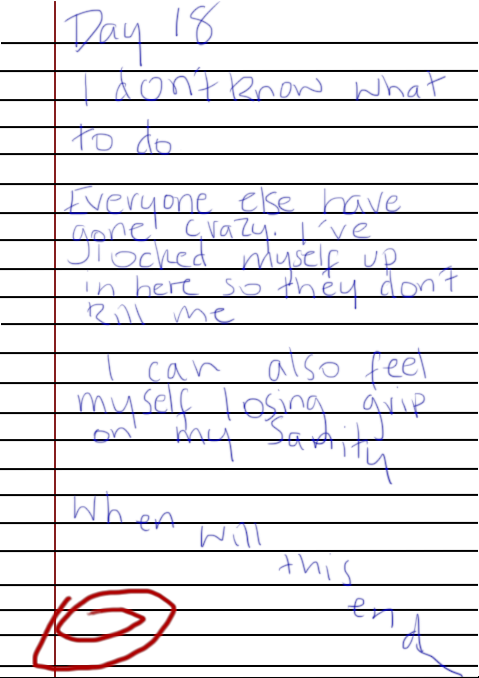 Day 18
I don't know what
to do
Everyone else have
gone crazy. I've
locked myself up
in here so they don't
kill me
I can also feel
myself losing grip
on my Sanity
When will
this
end